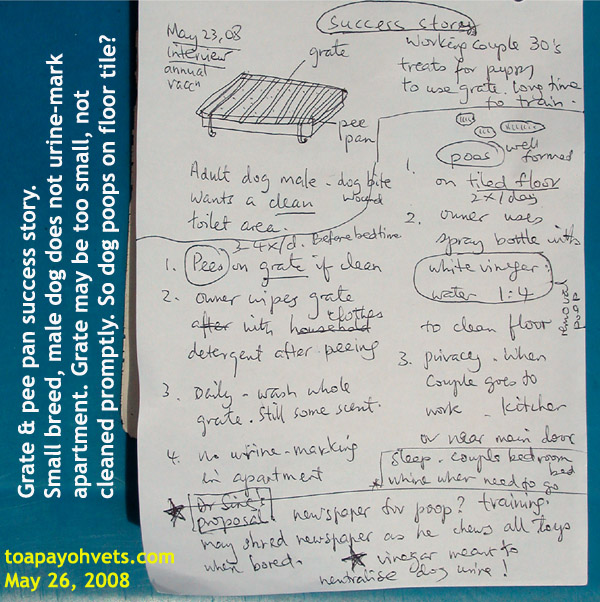 Grate & pee pan success story.
Small breed, male dog does not urine-mark
apartment. Grate may be too small, not
cleaned promptly. So dog poops on floor tile?
toapayohvets.com
May 26, 2008
May 23, 08
interview
annual
vaccn
success story
working couple 30's
treats for puppy
to use grate. long time
to train.
grate
pee
pan
Adult dog male - dog bite
wound
wants a clean
toilet area.
3-4x/d. Before bedtime
1. Pees on grate if clean
2. owner wipes grate
after with household clothes
detergent after peeing
3. Daily - wash whole
grate. Still some scent.
4. no urine-marking
in apartment
poos well
formed
1. on tiled floor
2x/day
2. owner uses
spray bottle with
white vinegar:
water 1:4
to clean floor
removal
poop
3. privacy. When
couple goes to
work - kitchen
or near main door
sleep. couple bedroom
bed
* whine when need to go
Dr Sing's
proposal. newspaper for poop? training.
may shred newspaper as he chews all toys
when bored. vinegar meant to
neutralise dog urine!